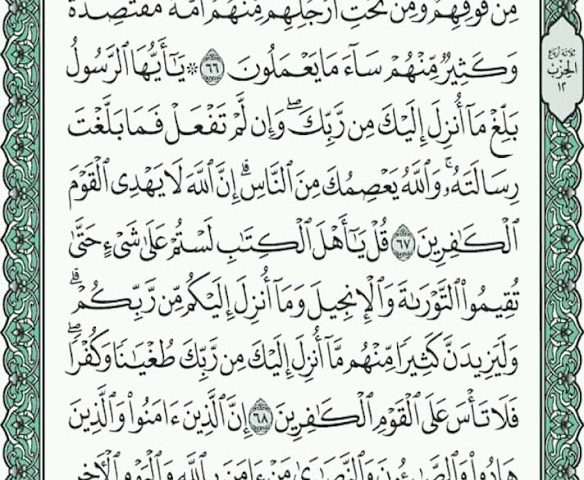 مِن فَوْقِهِمْ وَمِن تَحْتِ أَرْجُلِهِم مِّنْهُمْ أُمَّةٌ مُّقْتَصِدَةٌ
وَكَثِيرٌ مِّنْهُمْ سَآءَ مَا يَعْمَلُونَ ٦٦ ۞ يَـٰٓأَيُّهَا ٱلرَّسُولُ
بَلِّغْ مَآ أُنزِلَ إِلَيْكَ مِن رَّبِّكَ ۖ وَإِن لَّمْ تَفْعَلْ فَمَا بَلَّغْتَ
رِسَالَتَهُۥ ۚ وَٱللَّهُ يَعْصِمُكَ مِنَ ٱلنَّاسِ ۗ إِنَّ ٱللَّهَ لَا يَهْدِى ٱلْقَوْمَ
ٱلْكَـٰفِرِينَ ٦٧ قُلْ يَـٰٓأَهْلَ ٱلْكِتَـٰبِ لَسْتُمْ عَلَىٰ شَىْءٍ حَتَّىٰ
تُقِيمُوا۟ ٱلتَّوْرَىٰةَ وَٱلْإِنجِيلَ وَمَآ أُنزِلَ إِلَيْكُم مِّن رَّبِّكُمْ ۗ
وَلَيَزِيدَنَّ كَثِيرًا مِّنْهُم مَّآ أُنزِلَ إِلَيْكَ مِن رَّبِّكَ طُغْيَـٰنًا وَكُفْرًا ۖ
فَلَا تَأْسَ عَلَى ٱلْقَوْمِ ٱلْكَـٰفِرِينَ ٦٨ إِنَّ ٱلَّذِينَ ءَامَنُوا۟ وَٱلَّذِينَ
هَادُوا۟ وَٱلصَّـٰبِـُٔونَ وَٱلنَّصَـٰرَىٰ مَنْ ءَامَنَ بِٱللَّهِ وَٱلْيَوْمِ ٱلْـَٔاخِرِ
ثلاثة أرباع
الحزب
١٢